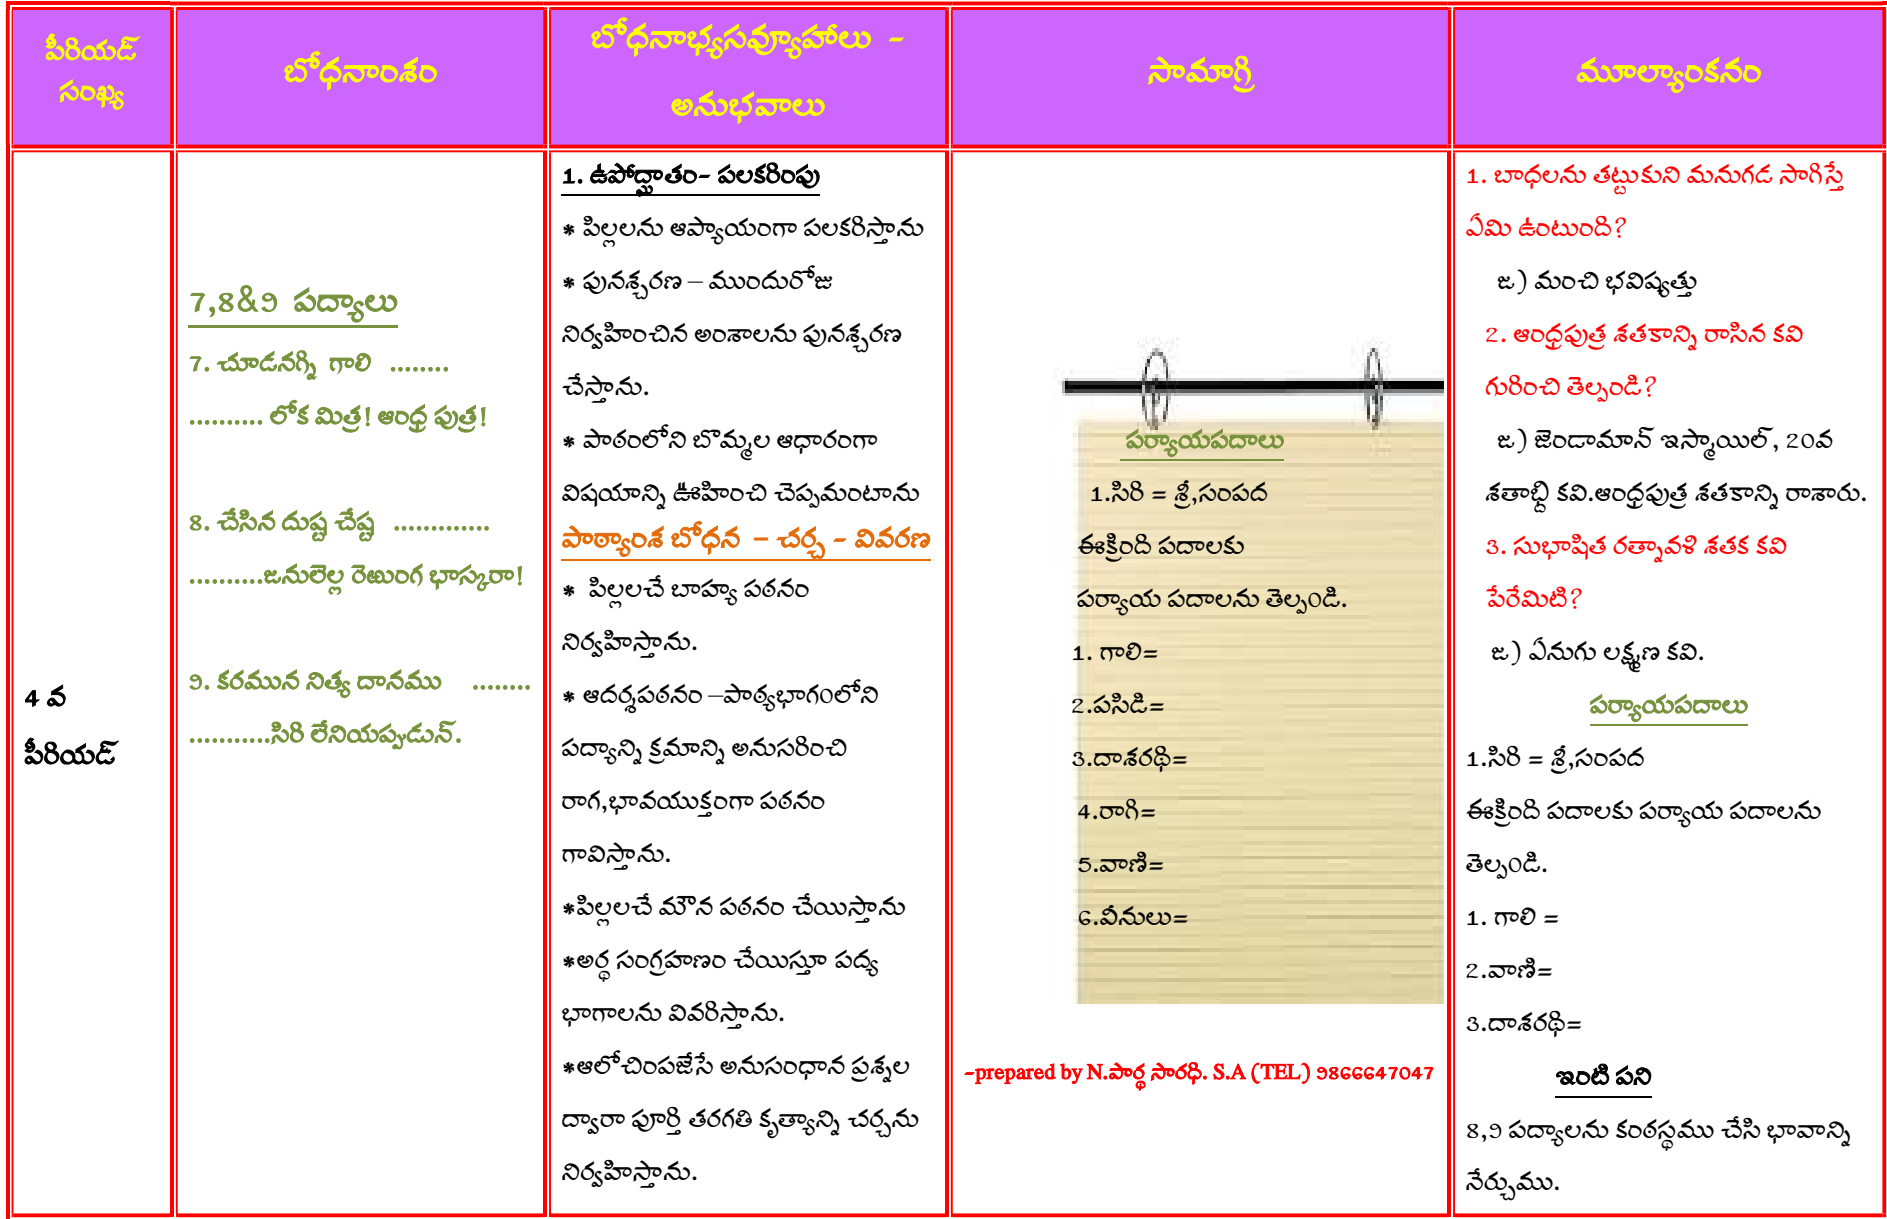 పీరియడ్
సంఖ్య
బోధనాంశం
బోధనాభ్యసవ్యూహాలు -
అనుభవాలు
సామాగ్రి
మూల్యాంకనం
4 వ
పీరియడ్
7,8&9 పద్యాలు
7. చూడనగ్ని గాలి ........
.......... లోక మిత్ర! ఆంధ్ర పుత్ర!
8. చేసిన దుష్ట చేష్ట .............
..........జనులెల్ల రెఱుంగ భాస్కరా!
9. కరమున నిత్య దానము ........
...........సిరి లేనియప్పుడున్.
1. ఉపోద్ఘాతం- పలకరింపు
* పిల్లలను ఆప్యాయంగా పలకరిస్తాను
* పునశ్చరణ – ముందురోజు
నిర్వహించిన అంశాలను పునశ్చరణ
చేస్తాను.
* పాఠంలోని బొమ్మల ఆధారంగా
విషయాన్ని ఊహించి చెప్పమంటాను
పాఠ్యాంశ బోధన – చర్చ - వివరణ
* పిల్లలచే బాహ్య పఠనం
నిర్వహిస్తాను.
* ఆదర్శపఠనం –పాఠ్యభాగంలోని
పద్యాన్ని క్రమాన్ని అనుసరించి
రాగ,భావయుక్తంగా పఠనం
గావిస్తాను.
*పిల్లలచే మౌన పఠనం చేయిస్తాను
*అర్థ సంగ్రహణం చేయిస్తూ పద్య
భాగాలను వివరిస్తాను.
*ఆలోచింపజేసే అనుసంధాన ప్రశ్నల
ద్వారా పూర్తి తరగతి కృత్యాన్ని చర్చను
నిర్వహిస్తాను.
పర్యాయపదాలు
1.సిరి = శ్రీ,సంపద
ఈక్రింది పదాలకు
పర్యాయ పదాలను తెల్పండి.
1. గాలి=
2.పసిడి=
3.దాశరథి=
4.రాగి=
5.వాణి=
6.వీనులు=
-prepared by N.పార్థ సారధి. S.A (TEL) 9866647047
1. బాధలను తట్టుకుని మనుగడ సాగిస్తే
ఏమి ఉంటుంది?
జ) మంచి భవిష్యత్తు
2. ఆంధ్రపుత్ర శతకాన్ని రాసిన కవి
గురించి తెల్పండి?
జ) జెండామాన్ ఇస్మాయిల్, 20వ
శతాబ్ది కవి.ఆంధ్రపుత్ర శతకాన్ని రాశారు.
3. సుభాషిత రత్నావళి శతక కవి
పేరేమిటి?
జ) ఏనుగు లక్ష్మణ కవి.
పర్యాయపదాలు
1.సిరి = శ్రీ,సంపద
ఈక్రింది పదాలకు పర్యాయ పదాలను
తెల్పండి.
1. గాలి =
2.వాణి=
3.దాశరథి=
ఇంటి పని
8,9 పద్యాలను కంఠస్థము చేసి భావాన్ని
నేర్చుము.